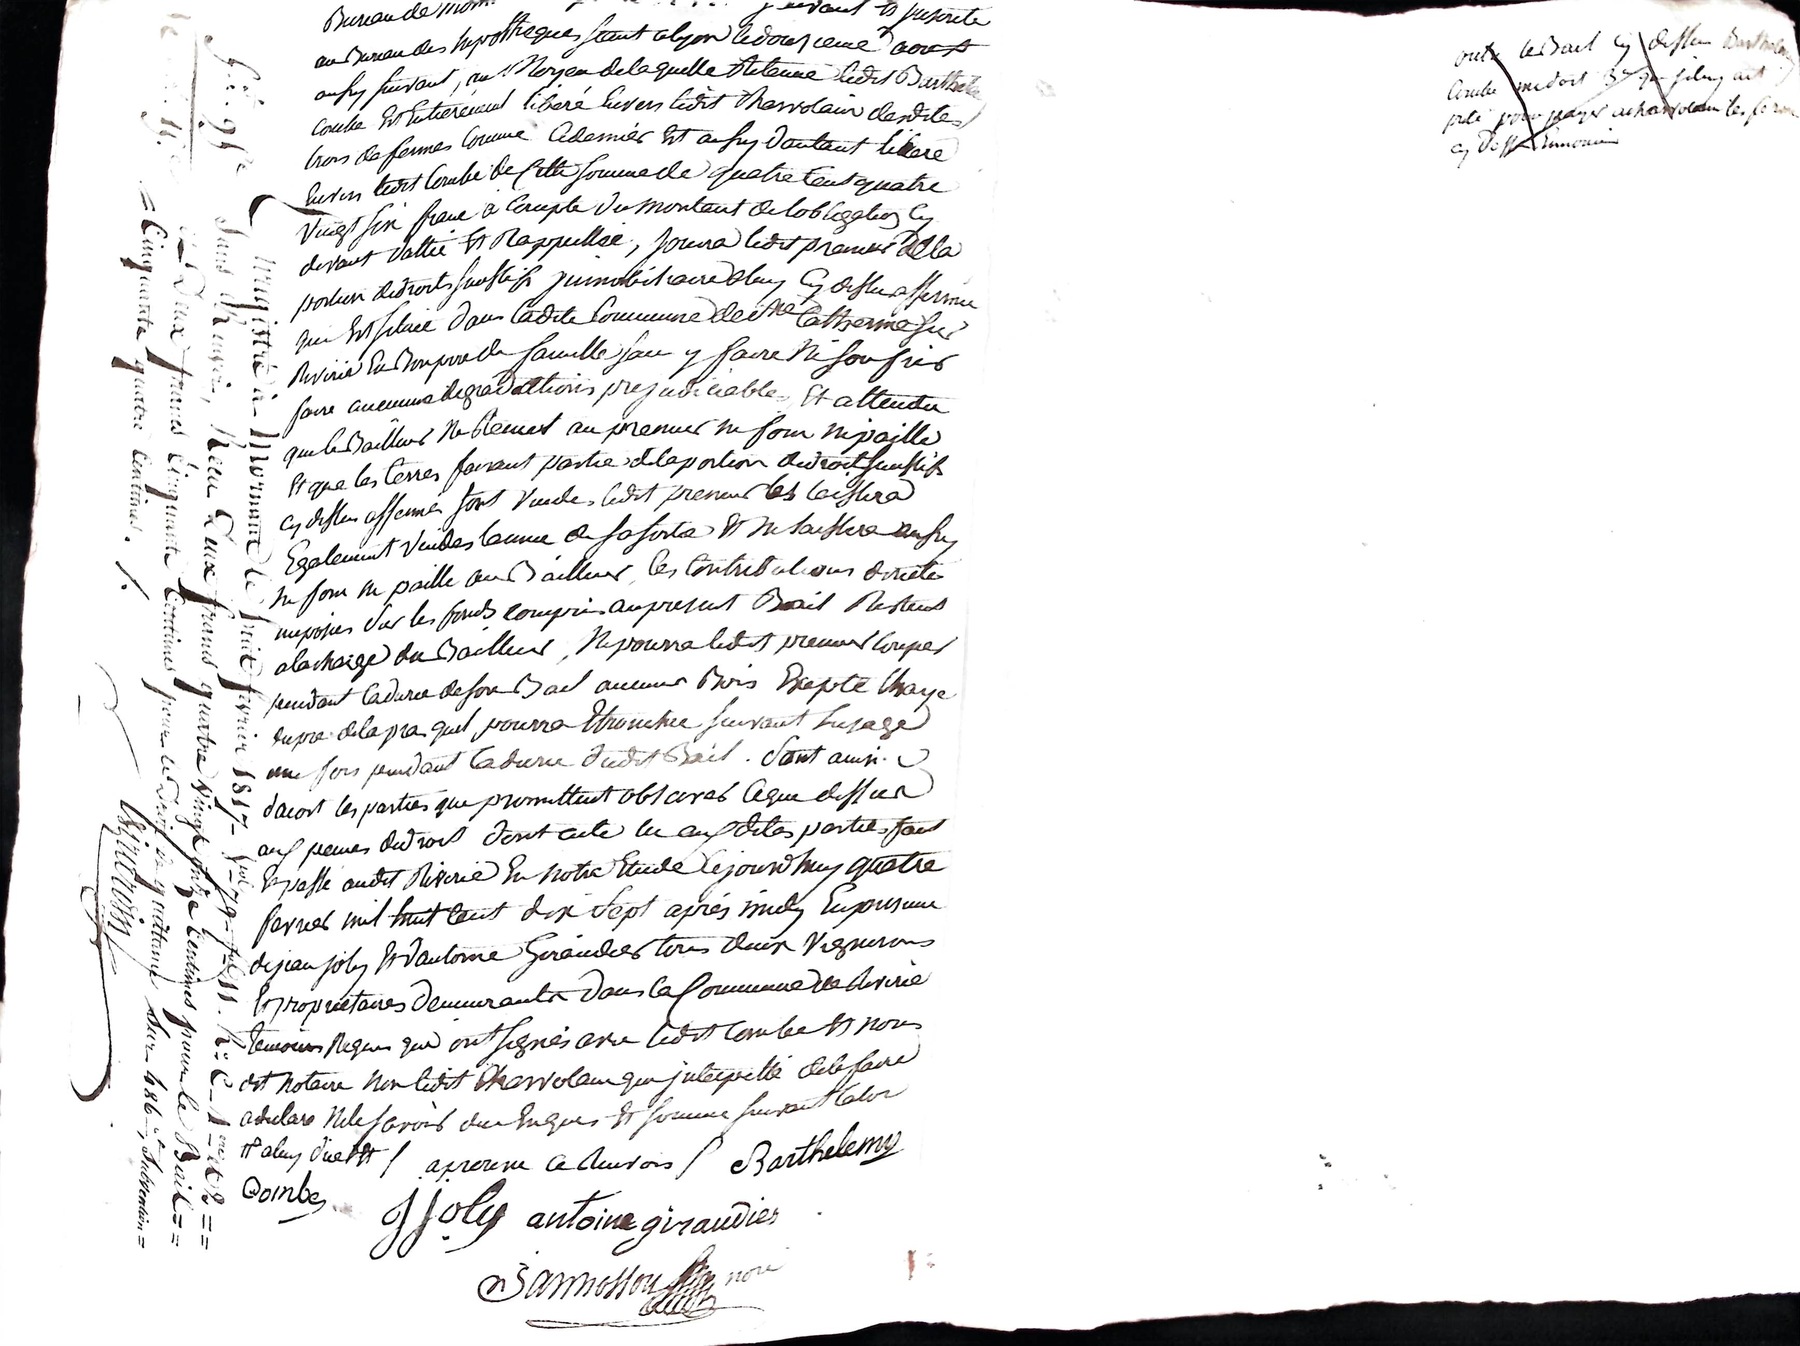 Bureau de suivant et inscrite
au Bureau des hipotheques seant a lyon le douzieme aoust
aussy suivant, au Moyen de laquelle Retenue ledit Barthelemy
Combe Est Entièrement libéré Envers ledit Charvolain desdites
trois de fermes Comme Ce dernier Est aussy dautant libere
Envers ledit Combe de Cette somme de quatre Cent quatre
Vingt six franc à Compte du montant de lobligation Cy
devant dattée Et Rappellée, Jouira ledit preneur de la
portion de droits Jmmobiliaire a luy Cy dessus affermée
qui Est située dans ladite Commune de Ste Catherine sur
Riverie En Bon pere de famille sans y faire Ni souffrir
faire aucunes degradattions prejudiciables, Et attendu
que le Bailleur Ne Remet au preneur ni foin ni paille
Et que les terres faisant partie de la portion de droit
Cy dessus affermée sont Vuides ledit preneur les laissera
Egalement Vuides lannée de sa sortie Et Ne laissera aussy
Ni foin Ni paille au Bailleur, les Contributions directes
imposées sur les fonds compris au present Bail Restent
a la charge du Bailleur, Ne pourra ledit preneur couper
pendant la durée de son Bail aucuns Bois Excepté lhaye
du pré de la pra quil pourra Ebrancher suivant lusage
une fois pendant la durée dudit Bail. Sont ainsi
dacort les parties que promettent observer Ce que dessus
aux peines de droit dont acte lu aux dites parties fait
Et passé audit Riverie En notre Etude Cejourdhuy quatre
fevrier mil huit Cent dix Sept après midy En presence
de jean joly Et d'antoine Giraudier tous deux Vignerons
Et proprietaires demeurants dans la Commune de Riverie
temoins Requis qui ont signés avec ledit Combe Et nous
dit Notaire Non ledit Charvolain qui jnterpellé de le faire
a declaré Ne le savoir de ce Enquis Et somme suivant la loi
Et a luy dûe Et / aprouvé Ce Renvois / Barthelemy
Combe
J Joly antoine giraudier
nore
Enregistré à Mornant le huit fevrier 1817 Vol. 79 fol. 11. R.o C. 1ere et 2 ==
dans Reçu Deux francs quatre Vingt onze Centimes pour le Bail ==
Deux francs Cinquante Centimes pour le Droit de quittance Sur 486 fr, Subvention =
= Cinquante quatre Centimes. /.
outre le Bail Cy dessus Barthelemy
Combe me doit que je luy ait
prêté pour payer a charvolain les fermes
cy dess